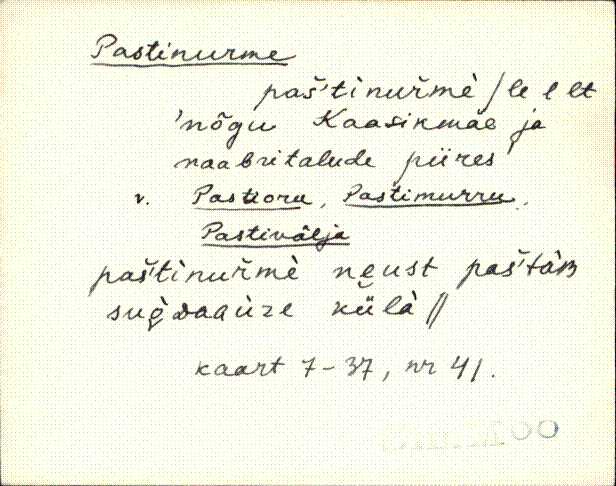 Pastinurme
paštinuřmè / le l lt
'nõgu Kaasikmäe ja
naabritalude piires'
v. Pastioru, Pastimurru,
Pastivälja
paštinuřmè neust paštàn
külà //
kaart 7-37, nr 41.